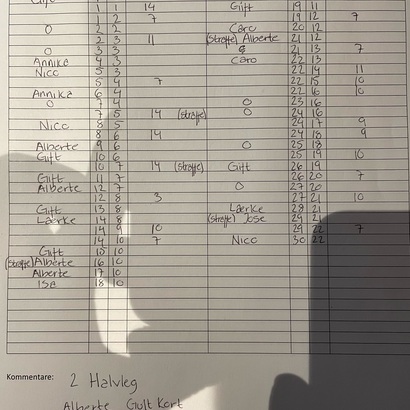 1 1 14 Gift 19 11
1 2 7 19 12 7
O 2 2 Caro 20 12
2 3 11 (Straffe) Alberte 21 12
O 3 3 21 13 7
Annika 4 3 Caro 22 13
Nico 5 3 22 14 11
5 4 7 22 15 10
Annika 6 4 22 16 10
O 7 4 O 23 16
7 5 14 (Straffe) O 24 16
Nico 8 5 24 17 9
8 6 14 24 18 9
Alberte 9 6 O 25 18
Gift 10 6 25 19 10
10 7 14 (Straffe) Gift 26 19
Gift 11 7 26 20 7
Alberte 12 7 O 27 20
12 8 3 27 21 10
Gift 13 8 Lærke 28 21
Lærke 14 8 (Straffe) Jose 29 21
14 9 10 29 22 7
14 10 7 Nico 30 22
Gift 15 10
(Straffe) Alberte 16 10
Alberte 17 10
Isa 18 10
Kommentare: 2 Halvleg
Alberte Gult Kort